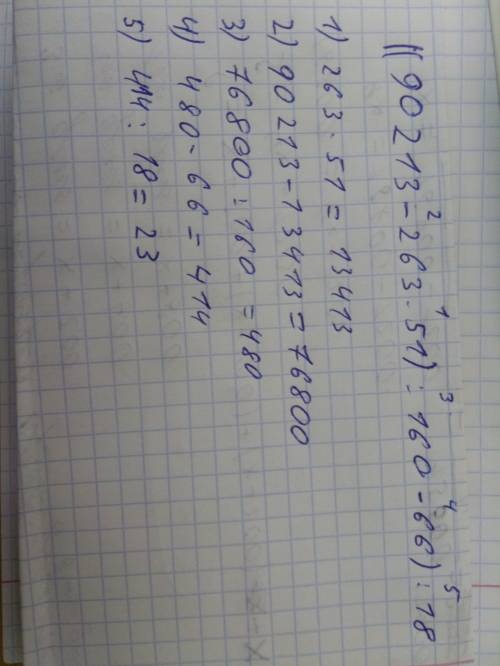 ((90213-263·51):160-66):18
2 1 3 4 5
1) 263·51=13413
2) 90213-13413=76800
3) 76800:160=480
4) 480-66=414
5) 414:18=23